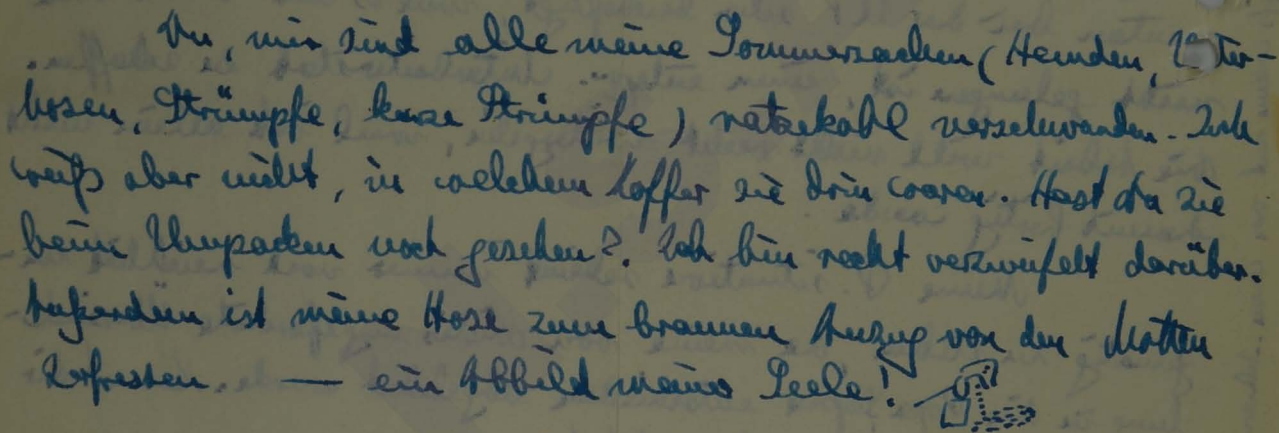 Du, mir sind alle meine Sommersachen (Hemden, Unter-
hosen, Strümpfe, kurze Strümpfe) ratzekahl verschwunden. Ich
weiß aber nicht, in welchem Koffer sie drin waren. Hast du sie
beim Umpacken noch gesehen?. Ich bin recht verzweifelt darüber.
Außerdem ist meine Hose zum braunen Anzug von den Motten
zerfressen. — ein Abbild meiner Seele!